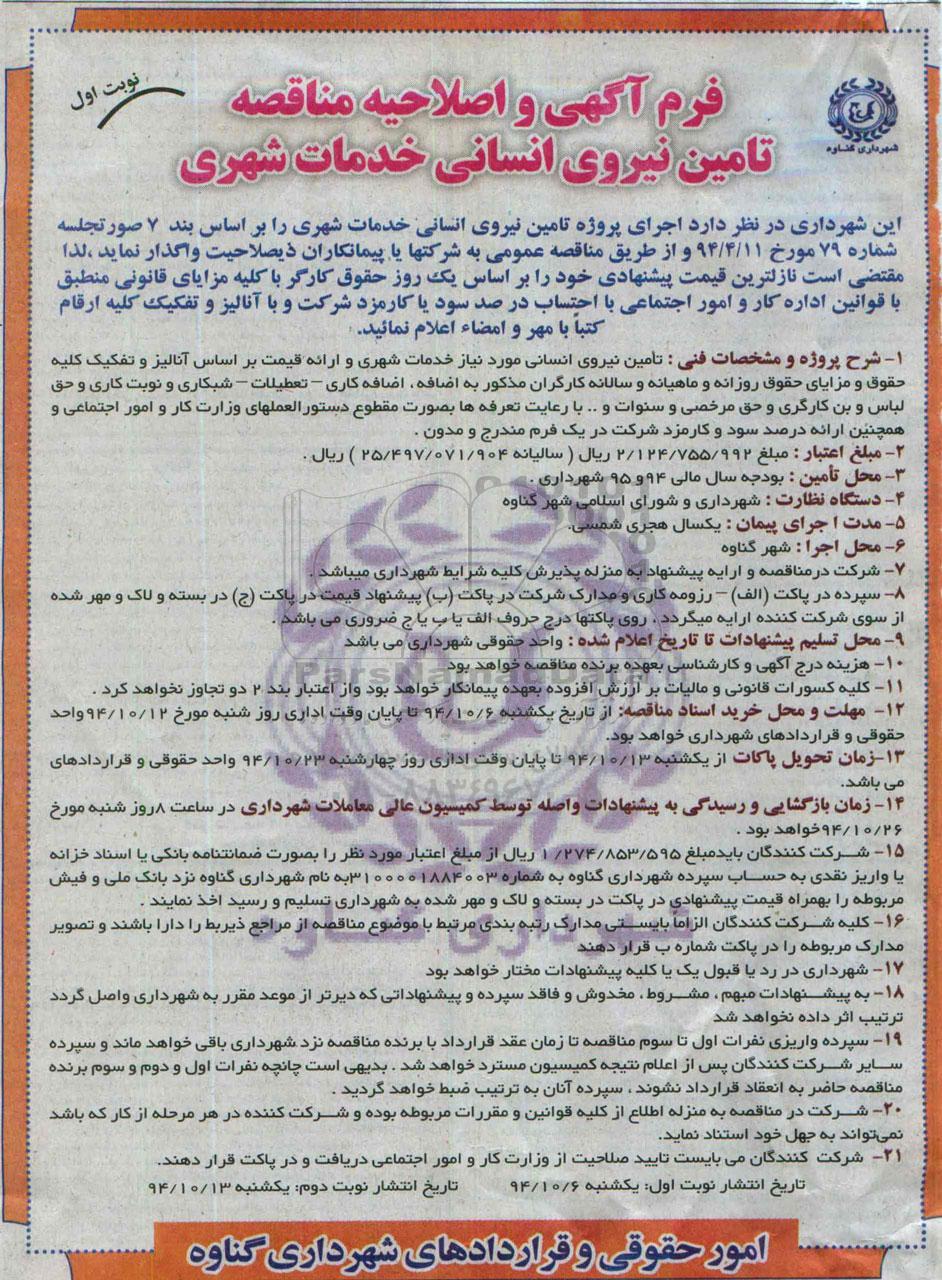 نوبت اول
فرم آگهی و اصلاحیه مناقصه
تامین نیروی انسانی خدمات شهری
شهرداری گناوه
این شهرداری در نظر دارد اجرای پروژه تامین نیروی انسانی خدمات شهری را بر اساس بند ۷ صورتجلسه
شماره ۷۹ مورخ ۹۴/۴/۱۱ و از طریق مناقصه عمومی به شرکتها یا پیمانکاران ذیصلاحیت واگذار نماید ،لذا
مقتضی است نازلترین قیمت پیشنهادی خود را بر اساس یک روز حقوق کارگر با کلیه مزایای قانونی منطبق
با قوانین اداره کار و امور اجتماعی با احتساب در صد سود یا کارمزد شرکت و با آنالیز و تفکیک کلیه ارقام
کتباً با مهر و امضاء اعلام نمائید.
۱- شرح پروژه و مشخصات فنی : تأمین نیروی انسانی مورد نیاز خدمات شهری و ارائه قیمت بر اساس آنالیز و تفکیک کلیه
حقوق و مزایای حقوق روزانه و ماهیانه و سالانه کارگران مذکور به اضافه ، اضافه کاری – تعطیلات – شبکاری و نوبت کاری و حق
لباس و بن کارگری و حق مرخصی و سنوات و .. با رعایت تعرفه ها بصورت مقطوع دستورالعملهای وزارت کار و امور اجتماعی و
همچنین ارائه درصد سود و کارمزد شرکت در یک فرم مندرج و مدون .
۲- مبلغ اعتبار : مبلغ ۲/۱۲۴/۷۵۵/۹۹۲ ریال ( سالیانه ۲۵/۴۹۷/۰۷۱/۹۰۴ ) ریال .
۳- محل تأمین : بودجه سال مالی ۹۴و ۹۵ شهرداری .
۴- دستگاه نظارت : شهرداری و شورای اسلامی شهر گناوه
۵- مدت ا جرای پیمان : یکسال هجری شمسی.
۶- محل اجرا : شهر گناوه
۷- شرکت درمناقصه و ارایه پیشنهاد به منزله پذیرش کلیه شرایط شهرداری میباشد .
۸- سپرده در پاکت (الف) – رزومه کاری و مدارک شرکت در پاکت (ب) پیشنهاد قیمت در پاکت (ج) در بسته و لاک و مهر شده
از سوی شرکت کننده ارایه میگردد ، روی پاکتها درج حروف الف یا ب یا ج ضروری می باشد .
۹- محل تسلیم پیشنهادات تا تاریخ اعلام شده : واحد حقوقی شهرداری می باشد
۱۰- هزینه درج آگهی و کارشناسی بعهده برنده مناقصه خواهد بود
۱۱- کلیه کسورات قانونی و مالیات بر ارزش افزوده بعهده پیمانکار خواهد بود واز اعتبار بند ۲ دو تجاوز نخواهد کرد .
۱۲- مهلت و محل خرید اسناد مناقصه: از تاریخ یکشنبه ۹۴/۱۰/۶ تا پایان وقت اداری روز شنبه مورخ ۹۴/۱۰/۱۲واحد
حقوقی و قراردادهای شهرداری خواهد بود.
۱۳-زمان تحویل پاکات از یکشنبه ۹۴/۱۰/۱۳ تا پایان وقت اداری روز چهارشنبه ۹۴/۱۰/۲۳ واحد حقوقی و قراردادهای
می باشد.
۱۴- زمان بازگشایی و رسیدگی به پیشنهادات واصله توسط کمیسیون عالی معاملات شهرداری در ساعت ۸روز شنبه مورخ
۹۴/۱۰/۲۶خواهد بود .
۱۵- شرکت کنندگان بایدمبلغ ۱/۲۷۴/۸۵۳/۵۹۵ ریال از مبلغ اعتبار مورد نظر را بصورت ضمانتنامه بانکی یا اسناد خزانه
یا واریز نقدی به حساب سپرده شهرداری گناوه به شماره ۳۱۰۰۰۰۱۸۸۴۰۰۳به نام شهرداری گناوه نزد بانک ملی و فیش
مربوطه را بهمراه قیمت پیشنهادی در پاکت در بسته و لاک و مهر شده به شهرداری تسلیم و رسید اخذ نمایند .
۱۶- کلیه شرکت کنندگان الزاماً بایستی مدارک رتبه بندی مرتبط با موضوع مناقصه از مراجع ذیربط را دارا باشند و تصویر
مدارک مربوطه را در پاکت شماره ب قرار دهند
۱۷- شهرداری در رد یا قبول یک یا کلیه پیشنهادات مختار خواهد بود
۱۸- به پیشنهادات مبهم ، مشروط ، مخدوش و فاقد سپرده و پیشنهاداتی که دیرتر از موعد مقرر به شهرداری واصل گردد
ترتیب اثر داده نخواهد شد
۱۹- سپرده واریزی نفرات اول تا سوم مناقصه تا زمان عقد قرارداد با برنده مناقصه نزد شهرداری باقی خواهد ماند و سپرده
سایر شرکت کنندگان پس از اعلام نتیجه کمیسیون مسترد خواهد شد . بدیهی است چانچه نفرات اول و دوم و سوم برنده
مناقصه حاضر به انعقاد قرارداد نشوند ، سپرده آنان به ترتیب ضبط خواهد گردید .
۲۰- شرکت در مناقصه به منزله اطلاع از کلیه قوانین و مقررات مربوطه بوده و شرکت کننده در هر مرحله از کار که باشد
نمی‌تواند به جهل خود استناد نماید.
۲۱- شرکت کنندگان می بایست تایید صلاحیت از وزارت کار و امور اجتماعی دریافت و در پاکت قرار دهند.
تاریخ انتشار نوبت اول: یکشنبه ۹۴/۱۰/۶ تاریخ انتشار نوبت دوم: یکشنبه ۹۴/۱۰/۱۳
امور حقوقی و قراردادهای شهرداری گناوه